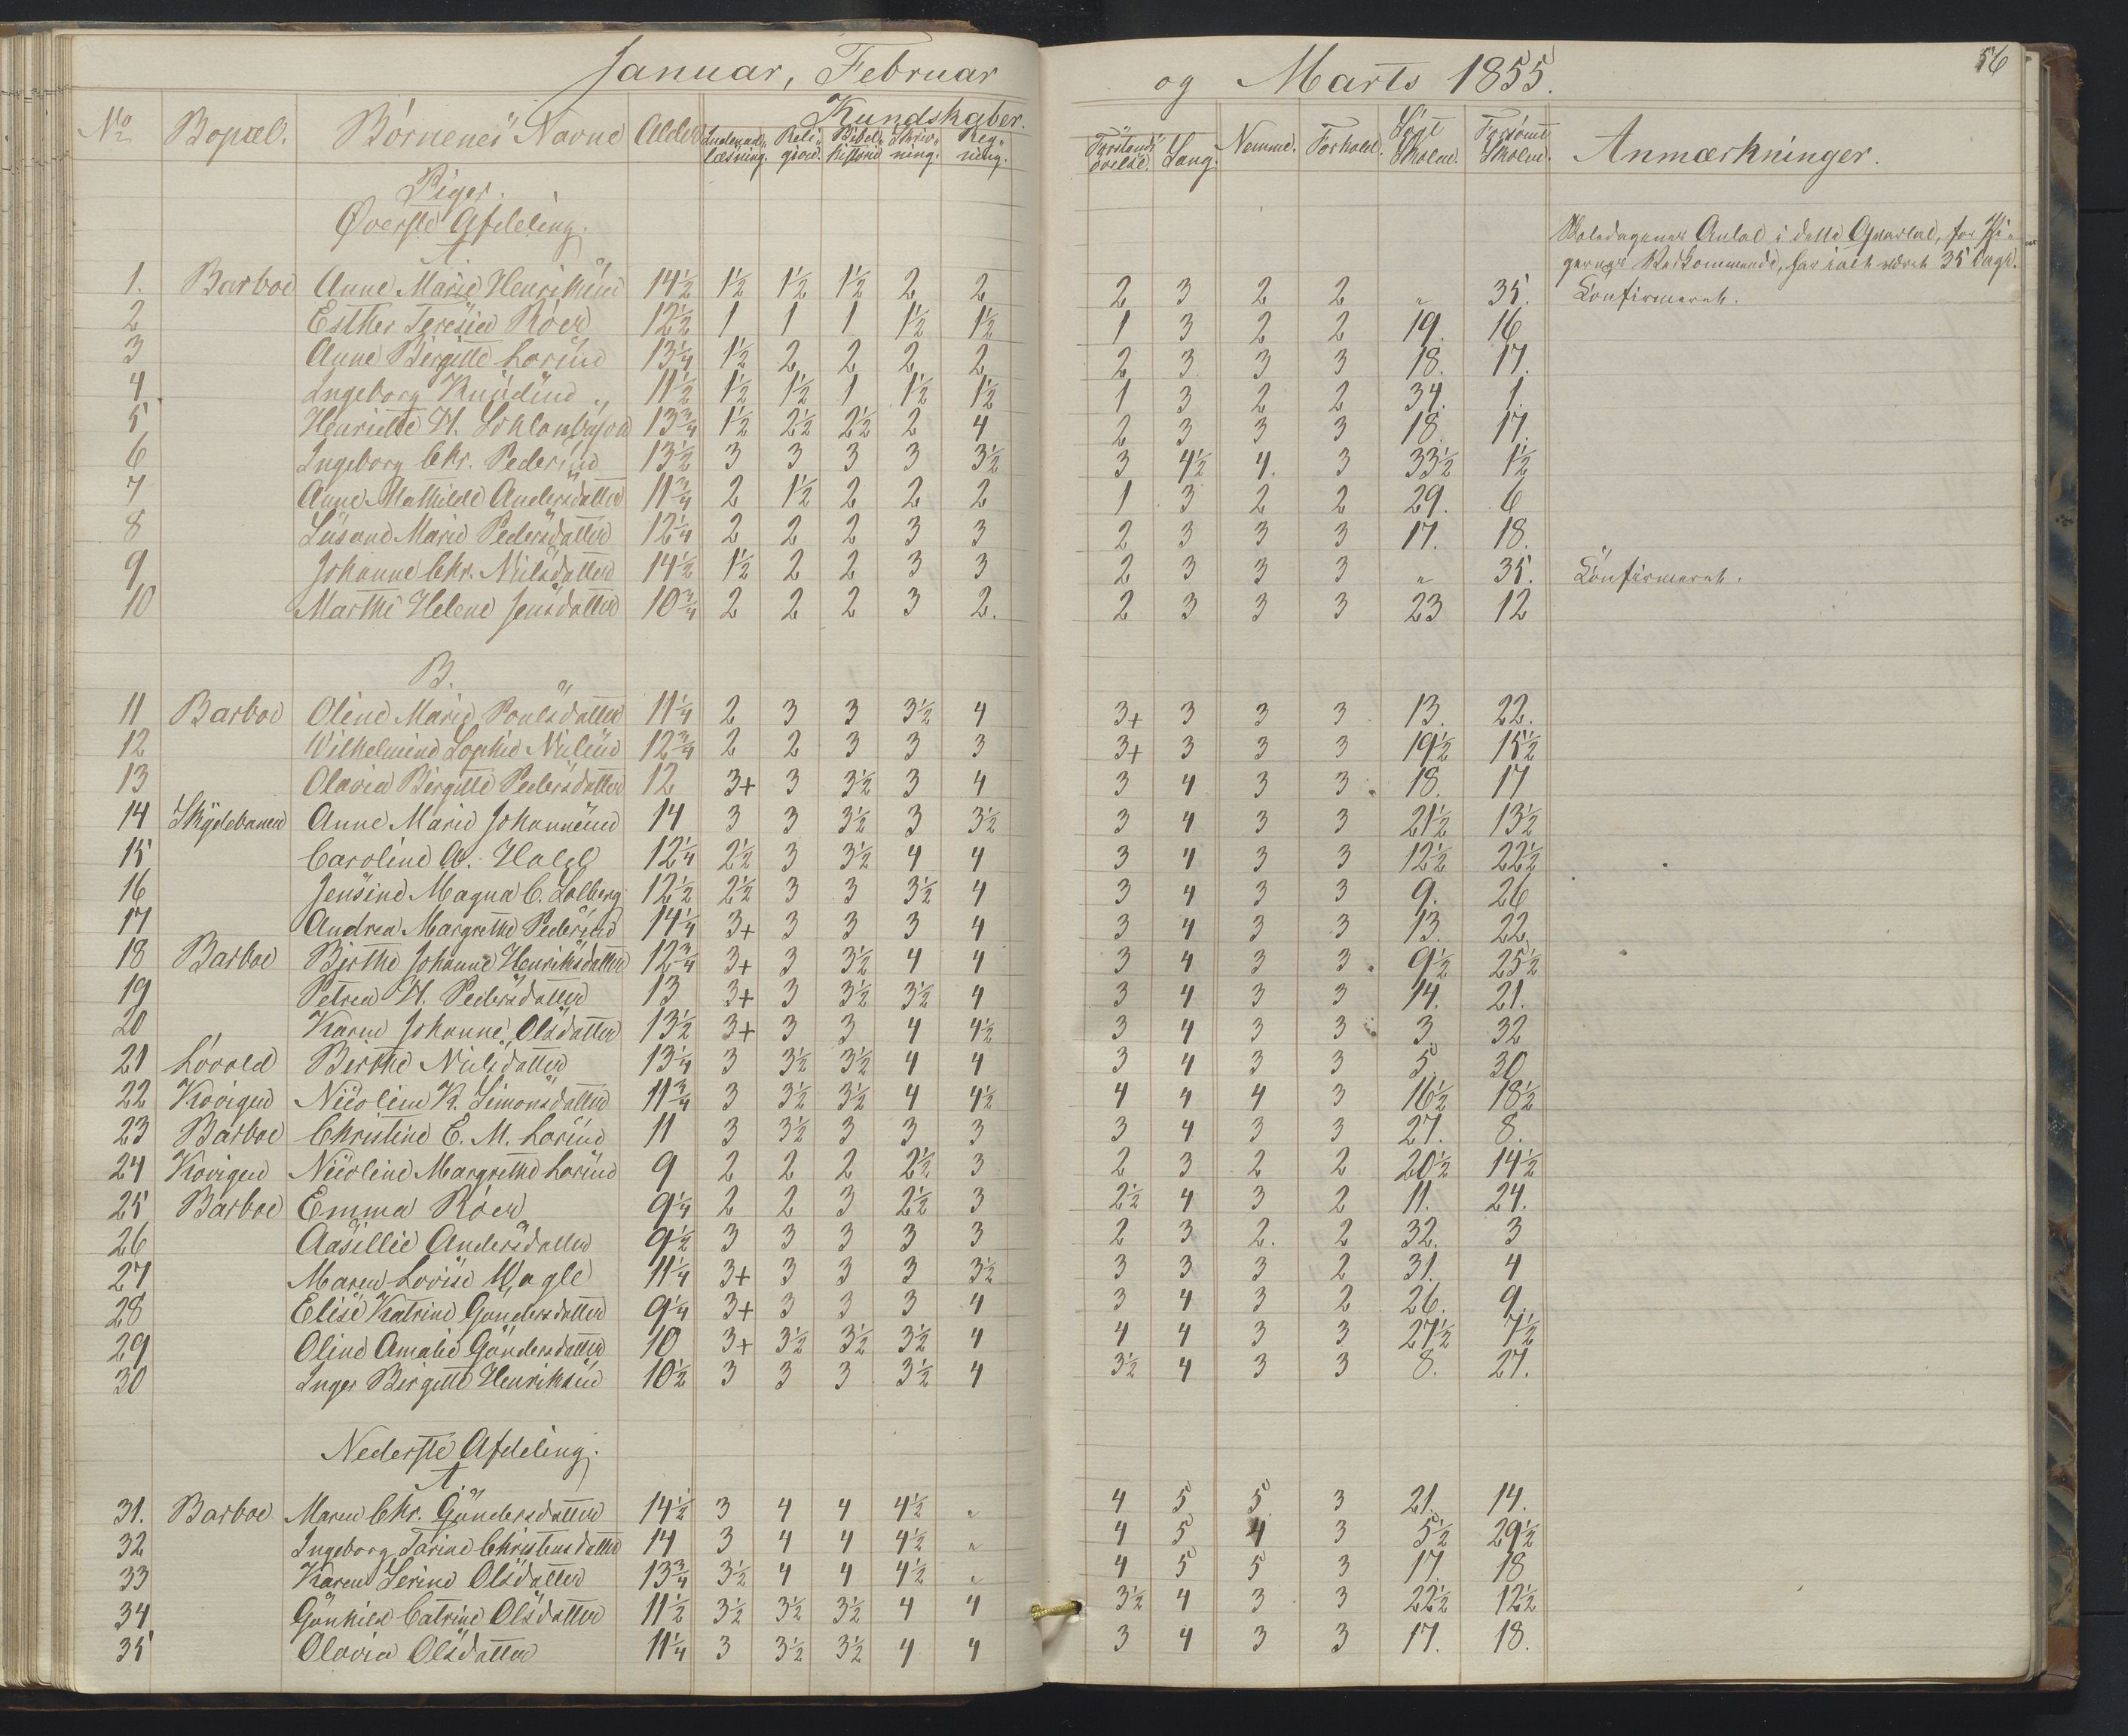 Januar, Februar og Marts 1855. 56
No Bopæl. Børnenes Navne Alder Kundskaber.
Indenadlæsning. Religion. Bibelhistorie Skrivning. Regning. Forstandsøvelse. Sang. Nemme. Forhold. Søgt Skolen. Forsømt Skolen. Anmærkninger.
Piger.
Øverste Afdeling.
A
Skoledagenes Antal i dette Quartal, for Pi-
gernes Vedkommende, har ialt været 35 Dage.
1. Barboe Anne Marie Henriksen 14½ 1½ 1½ 1½ 2 2 2 3 2 2 " 35. Confirmeret.
2 Esther Teresia Röer 12½ 1 1 1 1½ 1½ 1 3 2 2 19. 16
3 Anne Birgitte Larsen 13¼ 1½ 2 2 2 2 2 3 3 3 18. 17.
4. Ingeborg Knudsen " 11½ 1½ 1½ 1 1½ 1½ 1 3 2 2 34. 1.
5 Henriette H. 13¾ 1½ 2½ 2½ 2 4 2 3 3 3 18 17.
6 Ingeborg Chr. Pedersen 13½ 3 3 3 3 3½ 3 4½ 4. 3 33½ 1½
7 Anne Mathilde Andersdatter 11¾ 2 1½ 2 2 2 1 3 2 2 29. 6
8 Susane Marie Pedersdatter 12¼ 2 2 2 3 3 2 3 3 3 17. 18.
9 Johanne Chr. Nielsdatter 14½ 1½ 2 2 3 3 2 3 3 3 " 35. Confirmeret.
10 Marthe Helene Jensdatter 10¾ 2 2 2 3 2. 2 3 3 3 23 12
B.
11 Barboe Oline Marie Poulsdatter 11¼ 2 3 3 3½ 4 3+ 3 3 3 13. 22.
12 Wilhelmine Sophie Nielsen 12¾ 2 2 3 3 3 3+ 3 3 3 19½ 15½
13 Olavia Birgitte Pedersdatter 12 3+ 3 3½ 3 4 3 4 3 3 18. 17
14 Skydebanen Anne Marie Johannesen 14 3 3 3½ 3 3½ 3 4 3 3 21½ 13½
15 Caroline A. Holst 12¼ 2½ 3 3½ 4 4 3 4 3 3 12½ 22½
16 Jensine Magna C. Solberg 12½ 2½ 3 3 3½ 4 3 4 3 3 9. 26
17 Andrea Margrethe Pedersen 14¼ 3+ 3 3 3 4 3 4 3 3 13. 22
18 Barboe Birthe Johanne Henriksdatter 12¾ 3+ 3 3½ 4 4 3 4 3 3 9½ 25½
19 Petrea H. Pedersdatter 13 3+ 3 3½ 3½ 4 3 4 3 3 14. 21.
20 Karen Johanne Olsdatter 13½ 3+ 3 3 4 4½ 3 4 3 3 3 32
21 Løvold Berthe Nielsdatter 13¼ 3 3½ 3½ 4 4 3 4 3 3 5. 30
22 Kovigen Nicoline K. Simonsdatter 11¾ 3 3½ 3½ 4 4½ 4 4 4 3 16½ 18½
23 Barboe Christine E. M. Larsen 11 3 3½ 3 3 3 3 4 3 3 27. 8.
24 Kovigen Nicoline Margrethe Larsen 9 2 2 2 2½ 3 2 3 2 2 20½ 14½
25 Barboe Emma Röer 9¼ 2 2 3 2½ 3 2½ 4 3 2 11. 24.
26 Aasillie Andersdatter 9½ 3 3 3 3 3 2 3 2. 2 32. 3
27 Maren Lovise Wagle 11¼ 3+ 3 3 3 3½ 3 3 3 2 31. 4
28 Elise Katrine Gundersdatter 9¼ 3+ 3 3 3 4 3 4 3 2 26. 9.
29 Oline Amalie Gundersdatter 10 3+ 3½ 3½ 3½ 4 4 4 3 3 27½ 7½
30 Inger Birgitte Henriksen 10½ 3 3 3 3½ 4 3½ 4 3 3 8. 27.
Nederste Afdeling.
A.
31. Barboe Maren Chr. Gundersdatter 14½ 3 4 4 4½ " 4 5 5 3 21. 14.
32 Ingeborg Tarine Christensdatter 14 3 4 4 4½ " 4 5 4 3 5½ 29½
33 Karen Serine Olsdatter 13¾ 3½ 4 4 4½ " 4 5 5 3 17. 18
34 Gunhild Catrine Olsdatter 11½ 3½ 3½ 3½ 4 4 3½ 4 3 3 22½ 12½
35 Olavia Olsdatter 11¼ 3 3½ 3½ 4 4 3 4 3 3 17. 18.